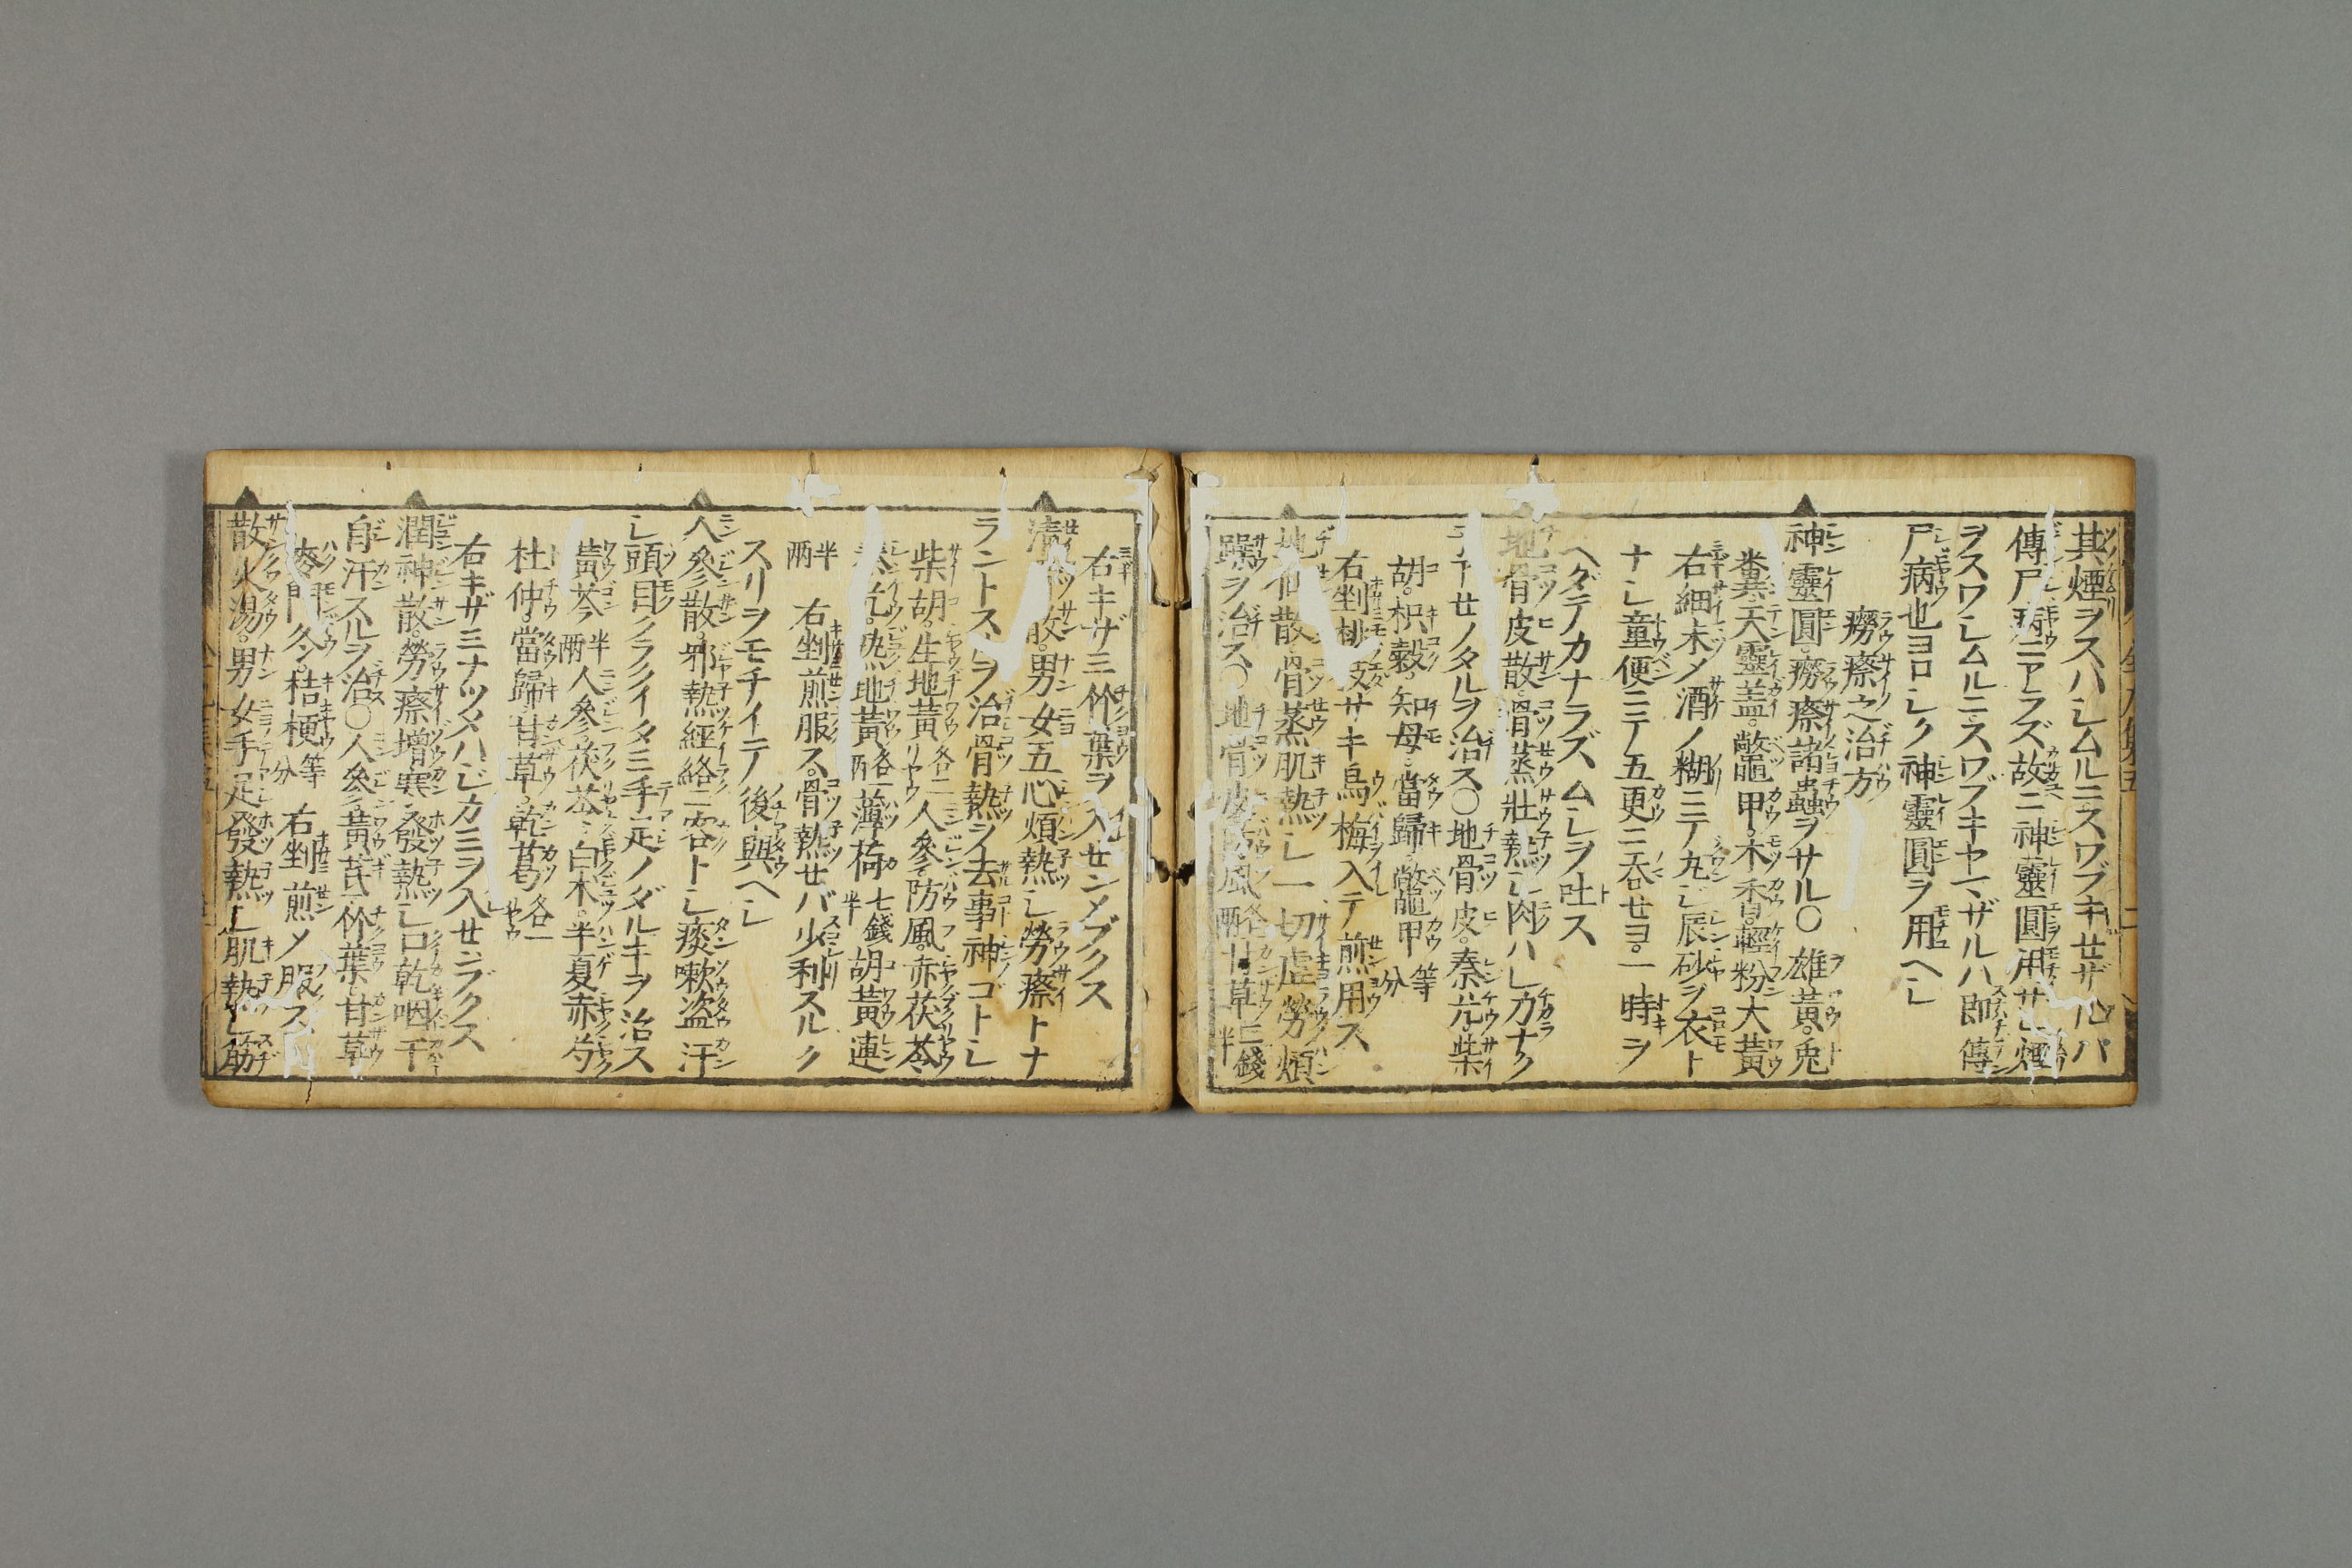 其煙ヲスハシムルニスワブキせザルハ
傳尸病ニアラズ故ニ神靈圓用サレ煙
ヲスワシムルニスワブキヤマザルハ即傳
尸病也ヨロシク神靈圓ヲ用ヘシ
癆瘵之治方
神靈圓。癆瘵諸蟲ヲサル〇雄黄。兎
糞。天靈盖。鱉甲。木香。輕粉大黄
右細末メ酒ノ糊ニテ丸シ辰砂ヲ衣ト
ナシ童便ニテ五更ニ呑せヨ。一時ヲ
ヘダテカナラズムシヲ吐ス
地骨皮散。骨蒸壯熱シ肉ハレ力ナク
ニナせノタルヲ治ス〇地骨皮。秦艽。柴
胡。枳殻。知母。當歸。鱉甲 等分
右剉桃枝サキ烏梅入テ煎用ス
地仙散。骨蒸肌熱シ一切虚勞煩
躁ヲ治ス〇地骨皮防風 各一兩 甘草 三錢半
右キザミ竹葉ヲ入せンメブクス
清 散。男女五心煩熱シ勞瘵トナ
ラントス ヲ治骨熱ヲ去事神ゴトシ
柴胡。生地黄 各二 人參防風。赤茯苓
秦艽。熟地黄 各一兩 薄荷 七錢半 胡黄連
半兩 右剉煎服ス。骨熱せバ少利スルク
スリヲモチイテ後與ヘシ
人參散。邪熱經絡ニ客トシ痰嗽盗汗
シ頭目クラクイタミ手足ノダルキヲ治ス
黄芩 半兩 人參。茯苓。白朮。半夏赤芍
杜仲。當歸。甘草。乾葛 各一
右キザミナツメハジカミヲ入せンジブクス
潤神散。勞瘵増寒發熱シ口乾咽干
自汗スルヲ治〇人參。黄芪。竹葉甘草
麥門冬。桔梗 等分 右剉煎メ服ス
散火湯。男女手足發熱シ肌熱シ筋